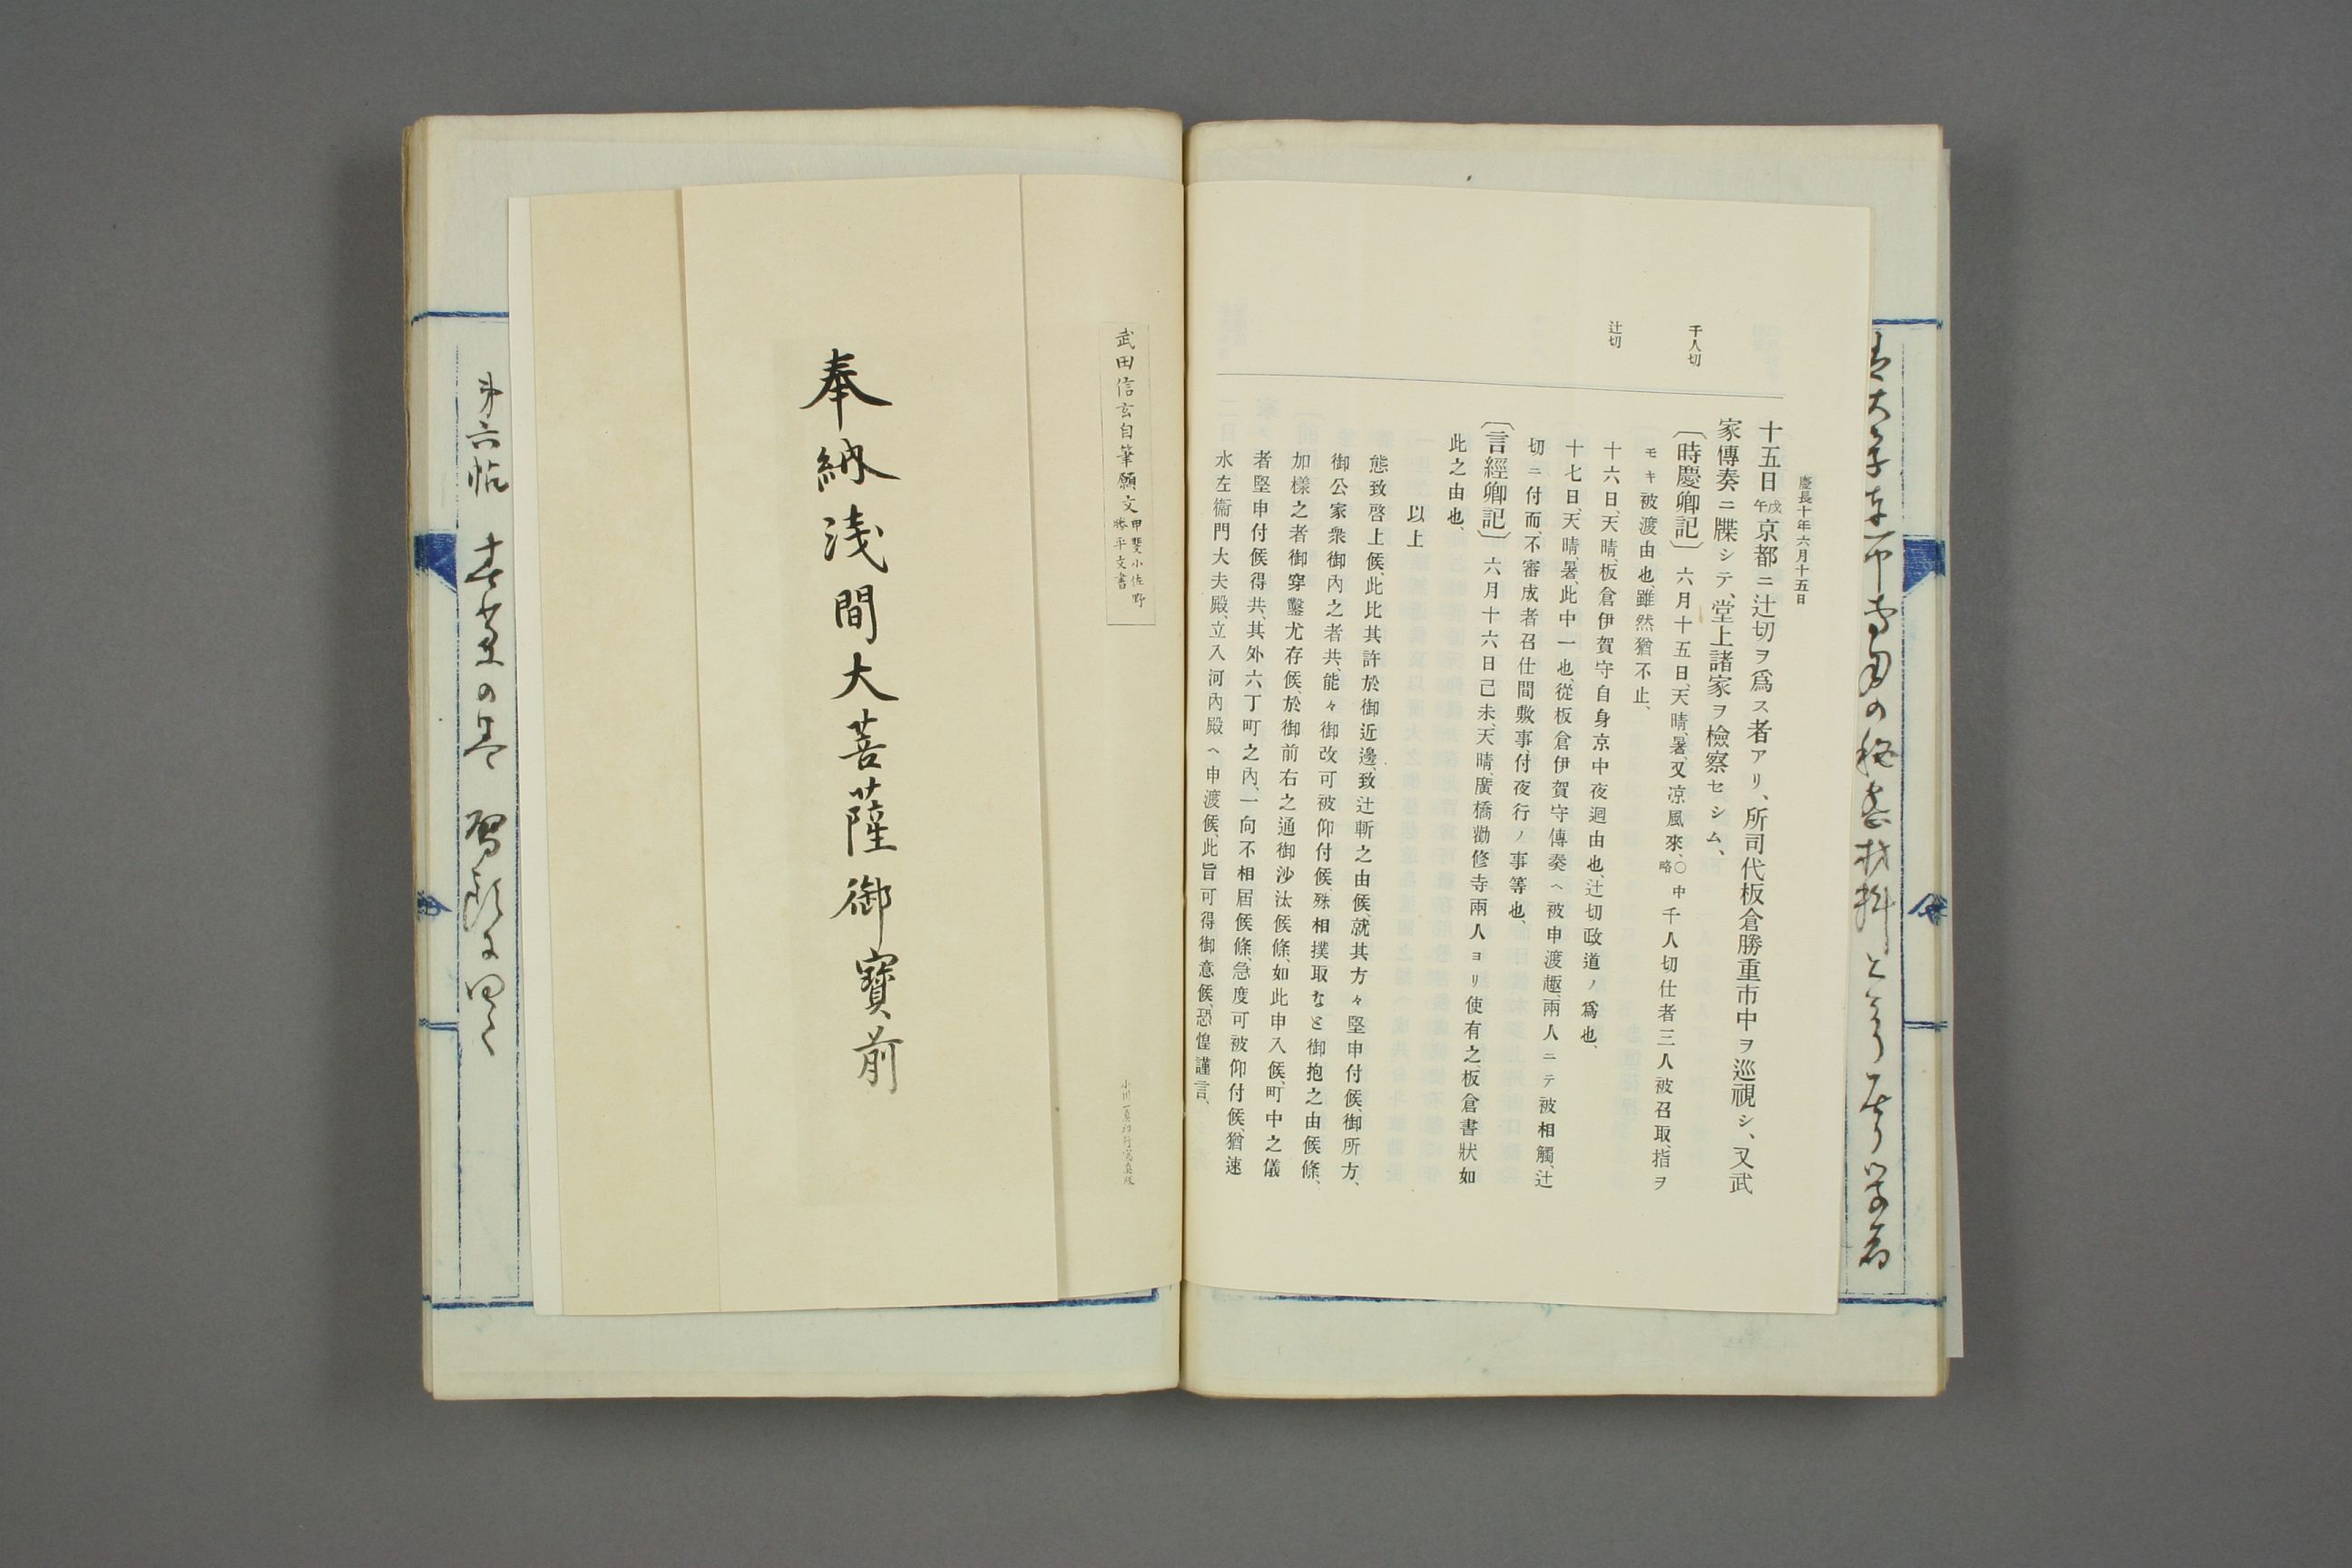 慶長十年六月十五日
千人切
辻切
十五日戊午京都ニ辻切ヲ爲ス者アリ、所司代板倉勝重市中ヲ巡視シ、又武
家傳奏ニ牒シテ、堂上諸家ヲ檢察セシム、
〔時慶卿記〕六月十五日、天晴、暑、又凉風來、○中略千人切仕者三人被召取、指ヲ
モキ被渡由也、雖然猶不止、
十六日、天晴、板倉伊賀守自身京中夜迴由也、辻切政道ノ爲也、
十七日、天晴、暑、此中一也、從板倉伊賀守傳奏ヘ被申渡趣、兩人ニテ被相觸、辻
切ニ付而、不審成者召仕間敷事、付夜行ノ事等也、
〔言經卿記〕六月十六日己未、天晴、廣橋勸修寺兩人ヨリ使有之、板倉書狀如
此之由也、
以上
態致啓上候、此比其許於御近邊、致辻斬之由候、就其方々堅申付候、御所方、
御公家衆御內之者共、能々御改可被仰付候、殊相撲取なと御抱之由候條、
加樣之者御穿鑿尤存候、於御前右之通御沙汰候條、如此申入候、町中之儀
者堅申付候得共、其外六丁町之內、一向不相屆候條、急度可被仰付候、猶速
水左衞門大夫殿、立入河內殿ヘ申渡候、此旨可得御意候、恐惶謹言、
武田信玄自筆願文甲斐小佐野勝平文書
奉納浅間大菩薩御寶前
小川一眞印行寫眞版